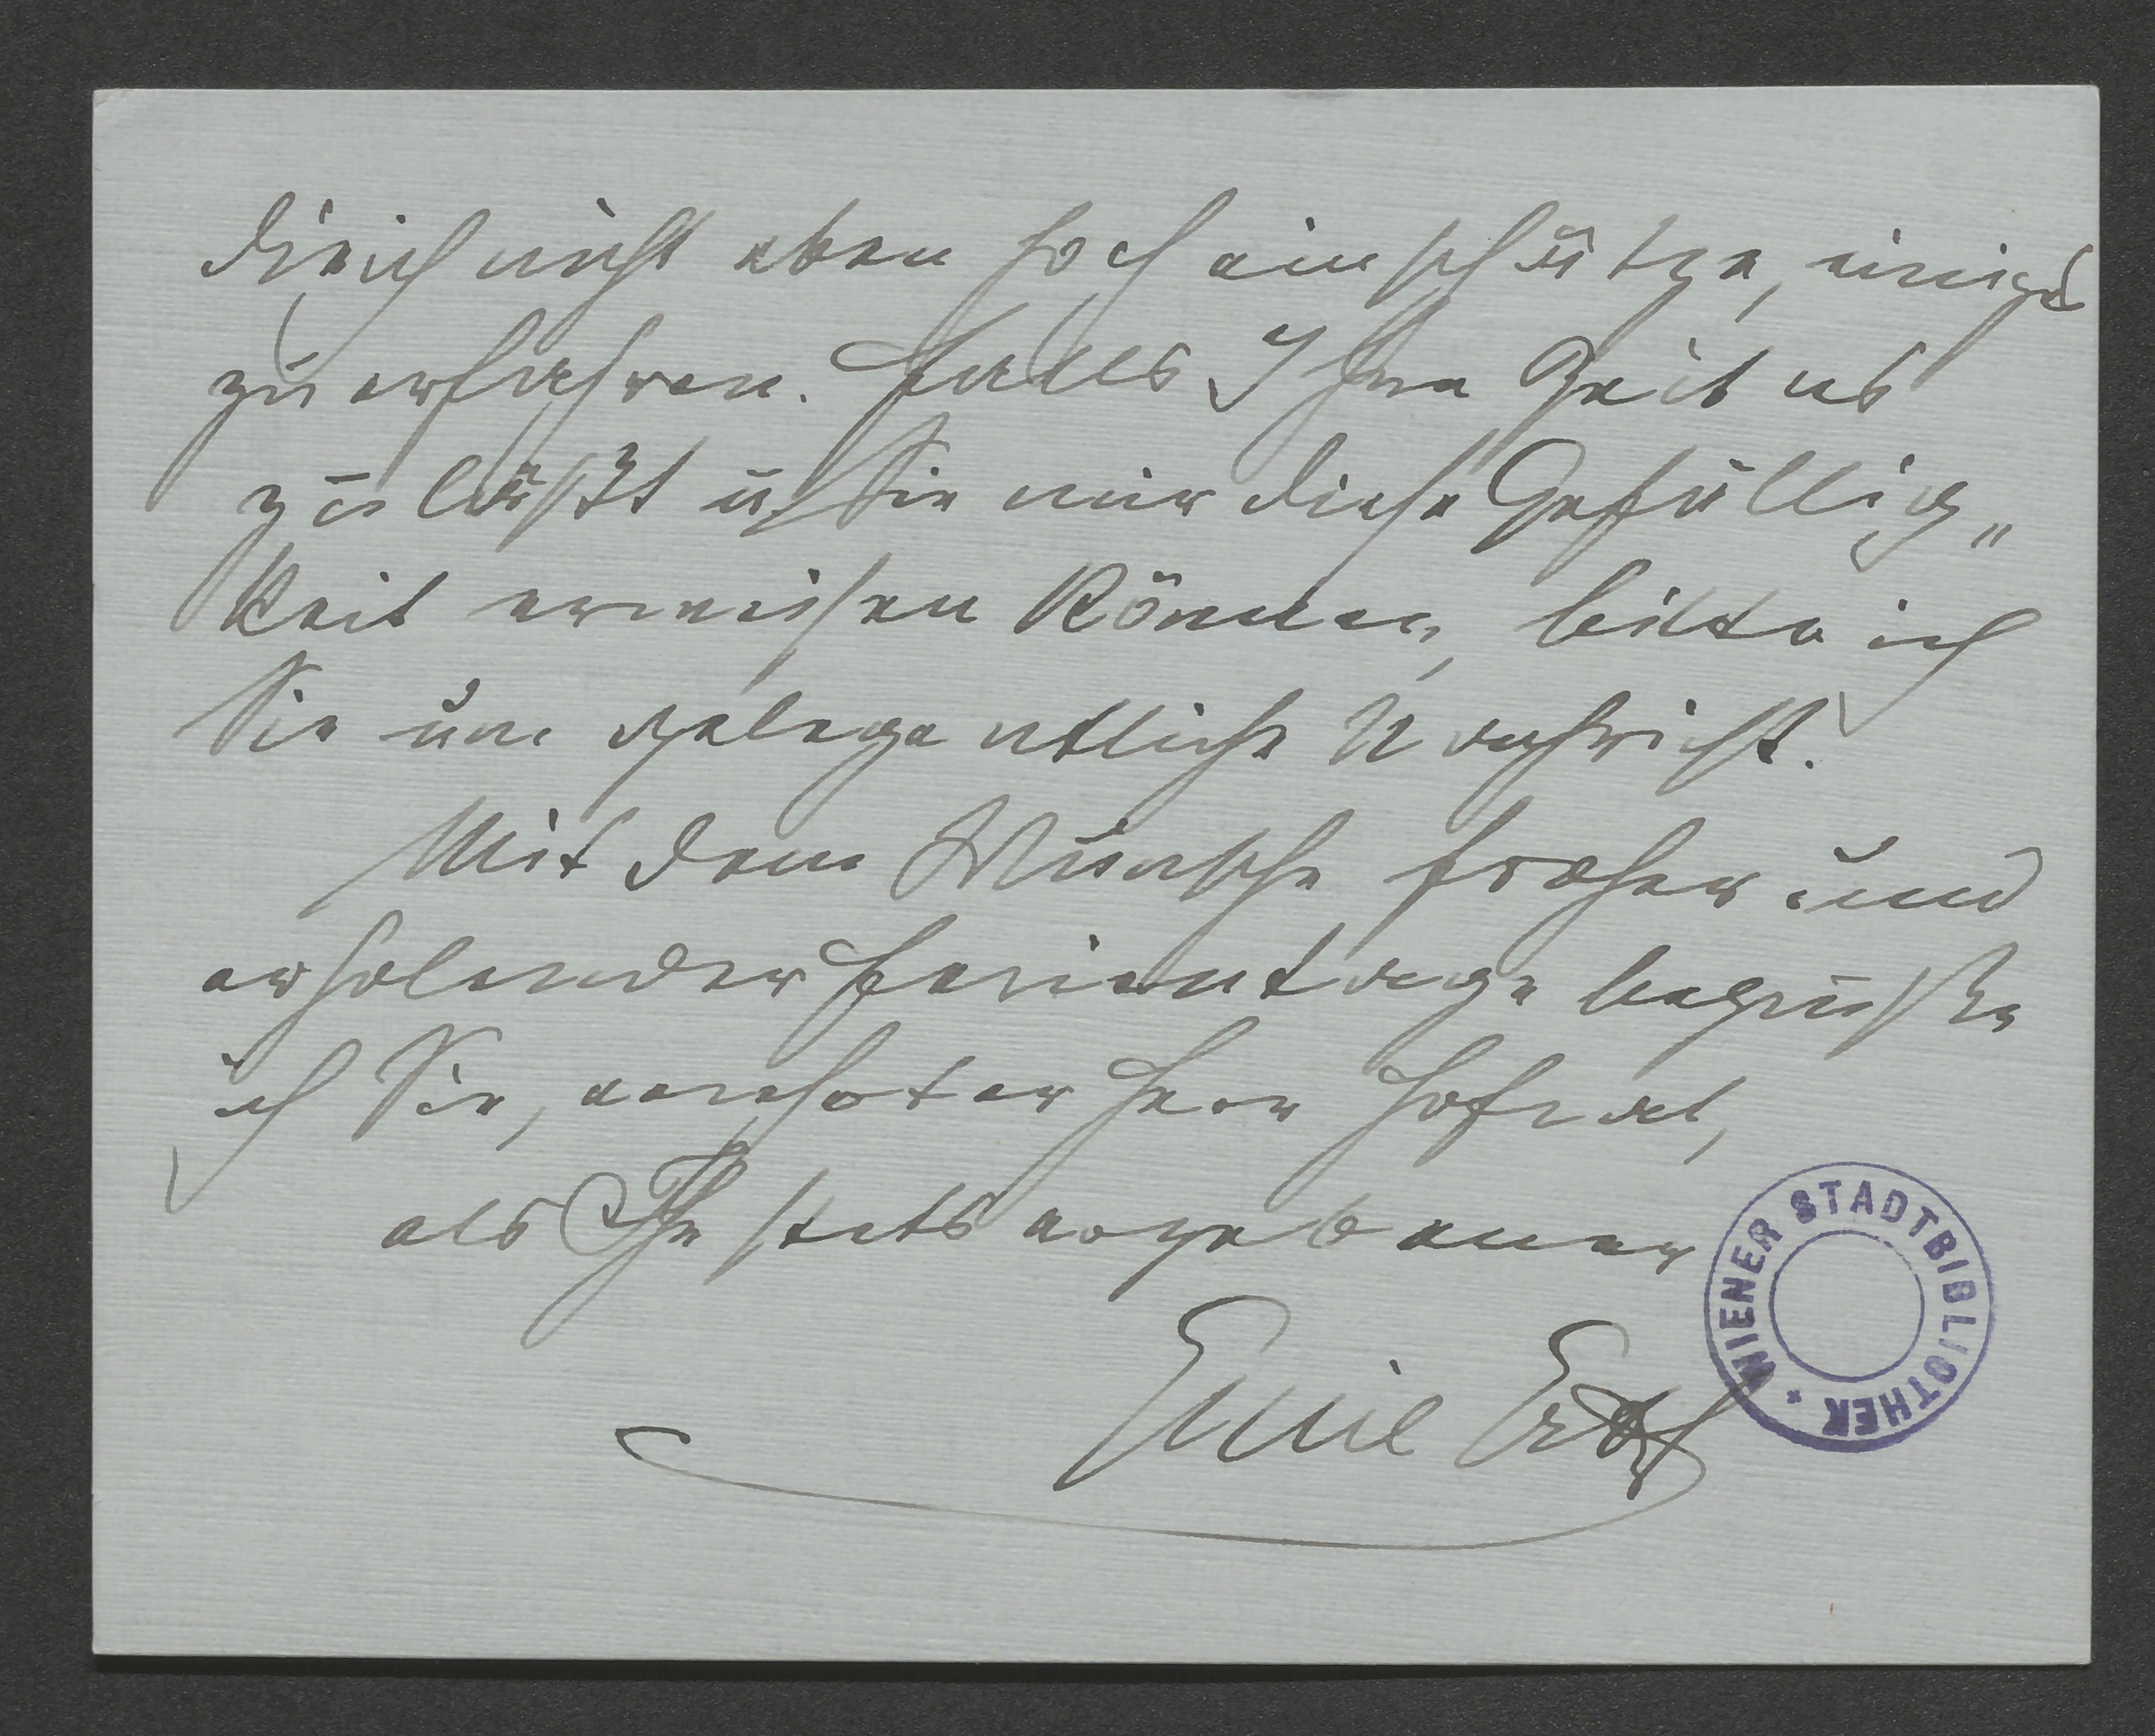 die ich nicht eben hoch einschätze, einiges
zu erfahren. Falls Ihre Zeit es
zuläßt u. Sie mir diese Gefällig„
keit erweisen können, bitte ich
Sie um gelegentliche Nachricht.
Mit dem Wunsche froher und
erholender Ferientage begrüße
ich Sie, verehrter Herr Hofrat,
als Ihr stets ergebener
Emil Ertl
WIENER STADTBIBLIOTHEK *